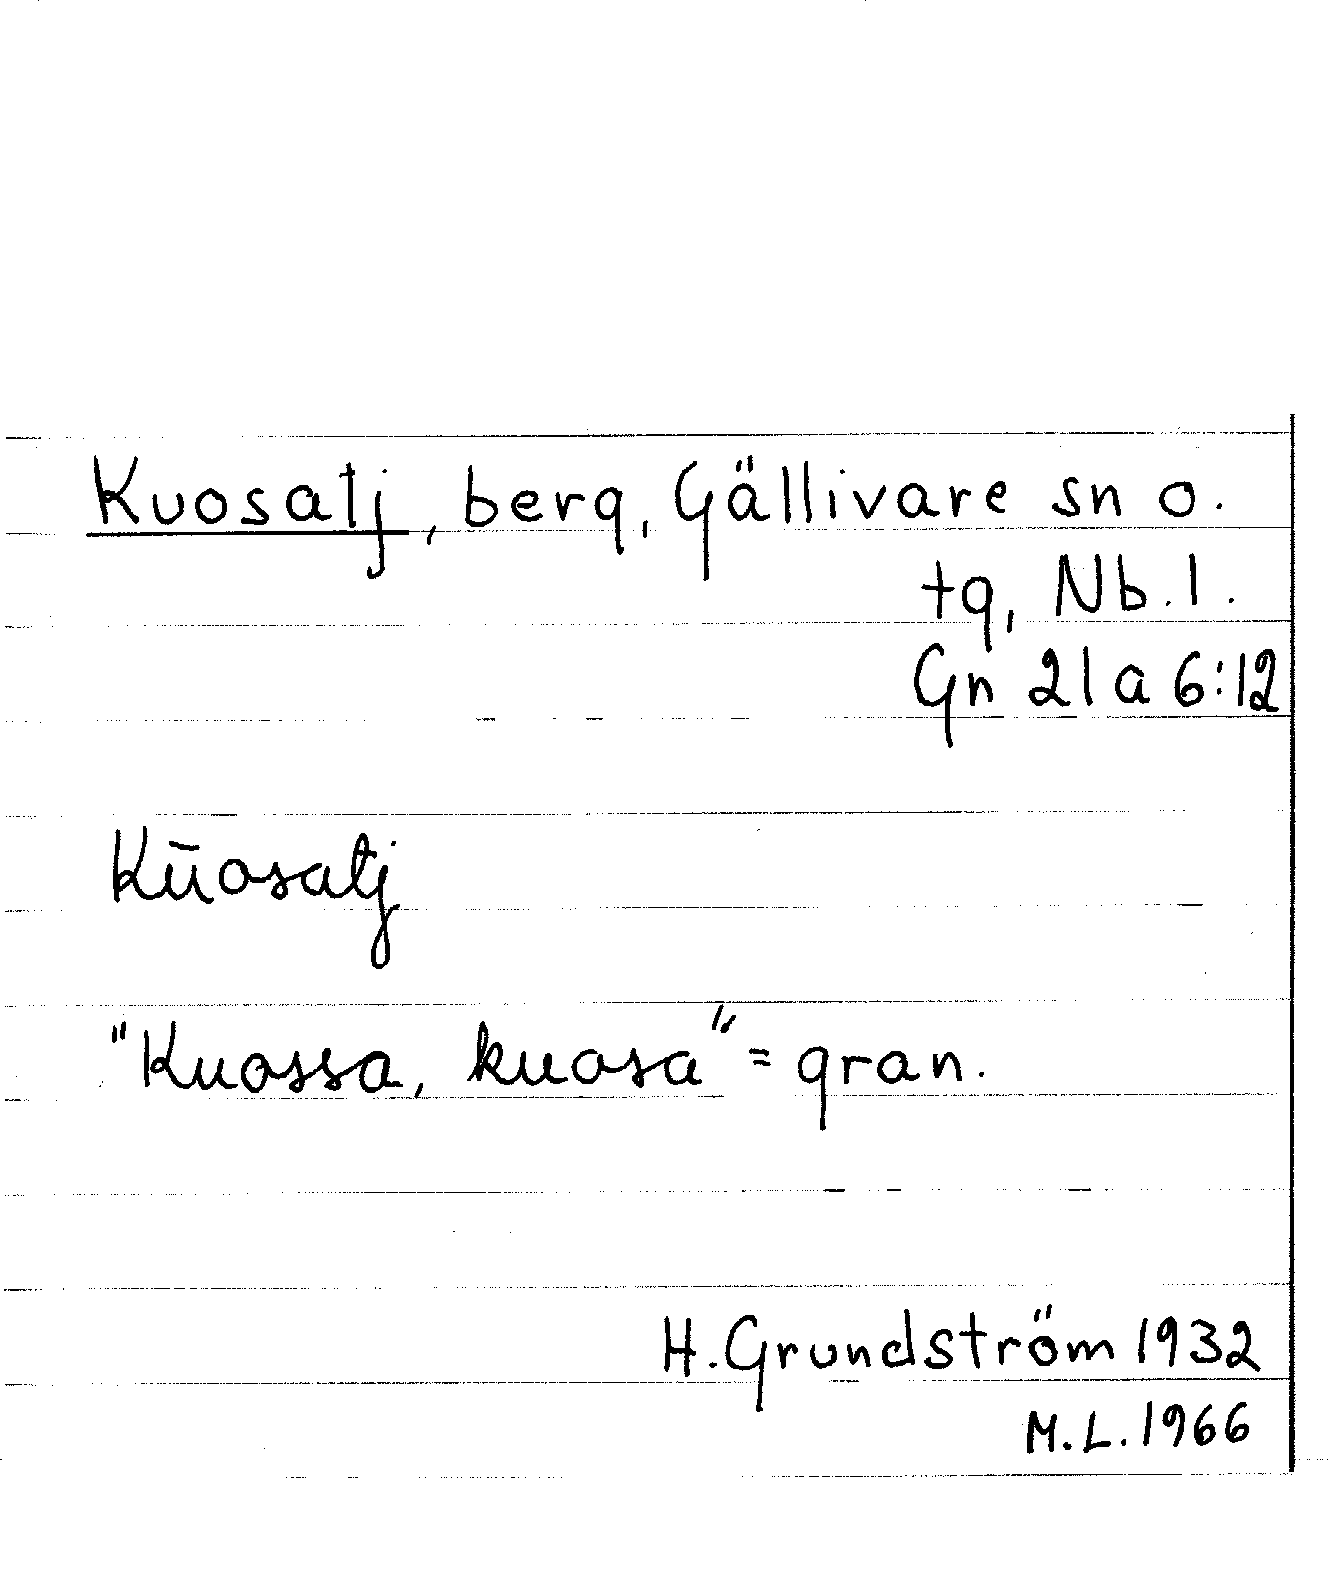 Kuosatj, berg, Gällivare sn o.
tg, Nb.l.
Gn 21a 6:12
Kūosatj
"Kuossa, kuosa" = gran.
H. Grundström 1932
M.L. 1966